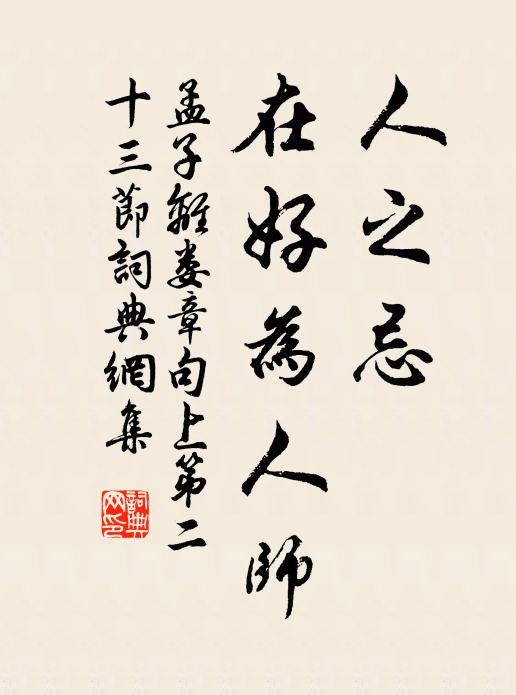 人之忌
在好為人師
孟子離婁章句上第二
十三節詞典網集
詞典
网印